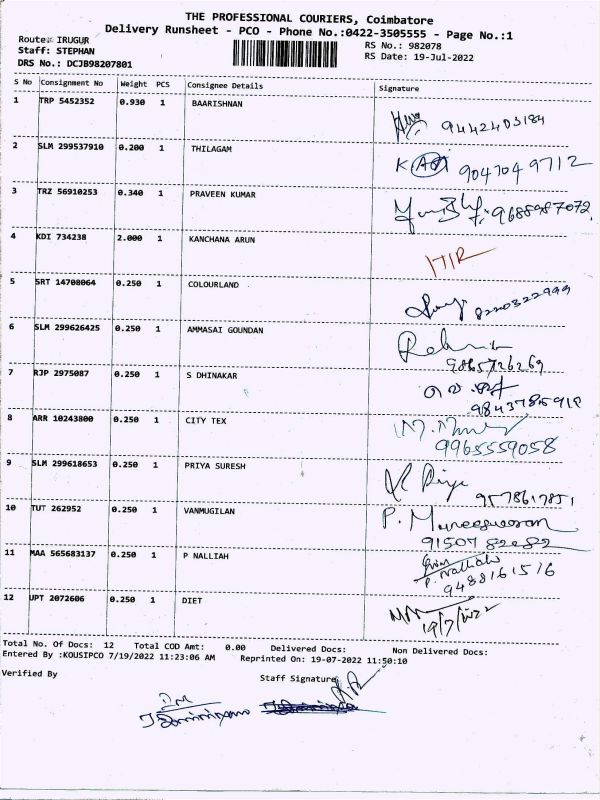 THE PROFESSIONAL COURIERS, Coimbatore
Delivery Runsheet - PCO - Phone No.:0422-3505555 - Page No.:1
Route: IRUGUR
RS No.: 982078
Staff: STEPHAN
RS Date: 19-Jul-2022
DRS No.: DCJB98207801
S No Consignment No Weight PCS Consignee Details Signature
1 TRP 5452352 0.930 1 BAARISHNAN
9442403184
2 SLM 299537910 0.200 1 THILAGAM
9047049712
3 TRZ 56910253 0.340 1 PRAVEEN KUMAR
9688987072
4 KDI 734238 2.000 1 KANCHANA ARUN
5 SRT 14700064 0.250 1 COLOURLAND
8220322999
6 SLM 299626425 0.250 1 AMMASAI GOUNDAN
9865726269
7 RJP 2975087 0.250 1 S DHINAKAR
8 ARR 10243800 0.250 1 CITY TEX
9965559058
9 SLM 299618653 0.250 1 PRIYA SURESH
9578617851
10 TUT 262952 0.250 1 VANMUGILAN
P. Muneeswaran
11 MAA 565683137 0.250 1 P NALLIAH
P. Nalliah
9488161516
12 UPT 2072606 0.250 1 DIET
19/7/2022
Total No. Of Docs: 12 Total COD Amt: 0.00 Delivered Docs: Non Delivered Docs:
Entered By :KOUSIPCO 7/19/2022 11:23:06 AM Reprinted On: 19-07-2022 11:50:10
Verified By Staff Signature